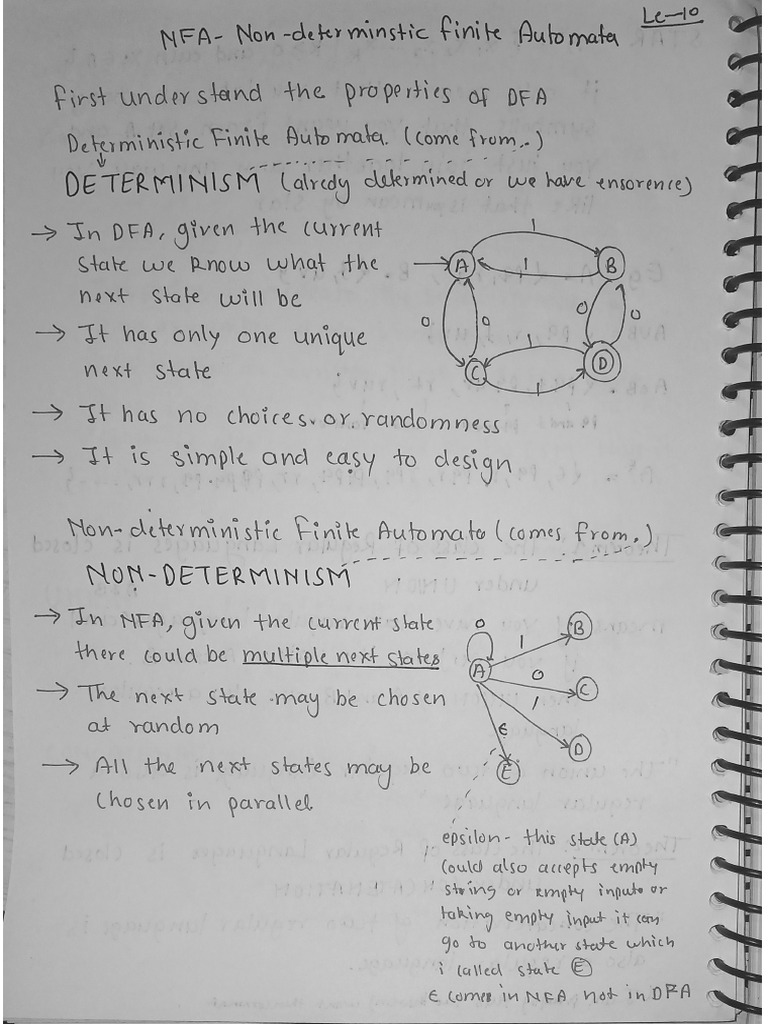 Lc-10
NFA- Non-determinstic finite Automata
first understand the properties of DFA
Deterministic Finite Automata. (come from..)
DETERMINISM (alredy determined or we have ensorence)
→ In DFA, given the current
state we know what the
next state will be
→ It has only one unique
next state
→ It has no choices or randomness
→ It is simple and easy to design
1
A
1
B
0
0
0
0
1
C
D
1
Non-deterministic Finite Automata (comes from.)
NON-DETERMINISM
→ In NFA, given the current state
there could be multiple next states
→ The next state may be chosen
at random
→ All the next states may be
chosen in parallel
0
1
B
A
0
C
1
ϵ
D
E
epsilon- this state (A)
could also accepts empty
string or empty inputs or
taking empty input it can
go to another state which
i called state E
ϵ comes in NFA not in DFA